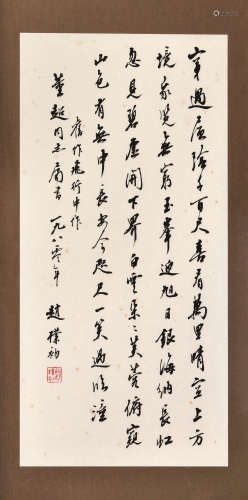 穿過層陰千百尺喜看萬里晴空上方
境象覺無窮玉峯迎旭日銀海納長虹
忽見碧虛開下界白雲朵々芙蓉俯窺
山色有無中長安今咫尺一笑過臨潼
舊作飛行中作
董超同志屬書 一九八零年 趙樸初